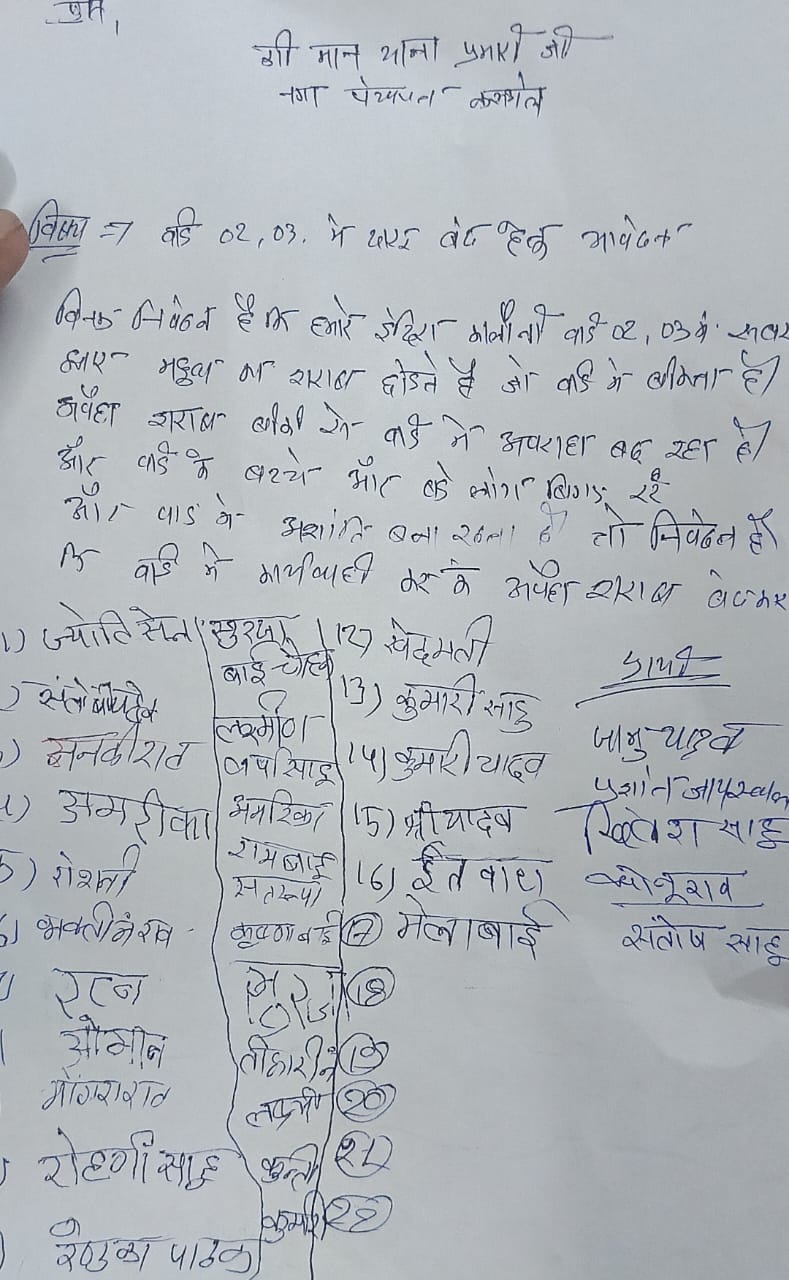 प्रति,
श्री मान थाना प्रभारी जी
नगर पंचायत
विषय => वार्ड 02, 03. में शराब बंद हेतु आवेदन
विनम्र निवेदन है कि हमारे इंदिरा कालोनी वार्ड 02, 03 में
महुआ का शराब छोडते है जो वार्ड में बीकता है।
अवैध शराब बीक्री से वार्ड में अपराध बढ़ रहा है।
और वार्ड के बच्चे और बडे लोग बिगड़ रहे
और वार्ड में अशांति बना रहता है तो निवेदन है
कि वार्ड में कार्यवाही कर के अवैध शराब बंद कर
1) ज्योति सेन
संतोषी यादव
जानकी राव
अमरीका
5) रोशनी
6) भक्तीन राव
रत्न
सोमीन
मोंगरा राव
रोहणी साहू
रेणुका पाठक
बाई चौहान
लक्ष्मीन
साहू
अमरिका
रामबाई
सतरूपा
कृष्णा बाई
18
तीहारीन 19
लक्ष्मी 20
कुन्ती 21
कुमारी 22
12) खेदमती
13) कुमारी साहु
14) कुमारी यादव
15) श्री यादव
16) ईतवारा
17 मेलाबाई
प्रार्थी
जामु यादव
प्रशांत जायसवाल
खिलेश साहू
सोनू राव
संतोष साहू